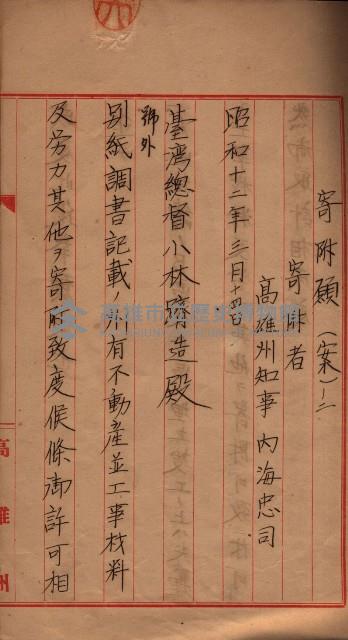 寄附願(案)ー二
寄附者
高雄州知事 內海忠司
昭和十二年三月十四日
臺灣總督小林躋造殿
號外
別紙調書記載ノ有不動產並工事材料
及労力其他ヲ寄附致度候條御許可相
高雄州
高雄市立歷史博物館